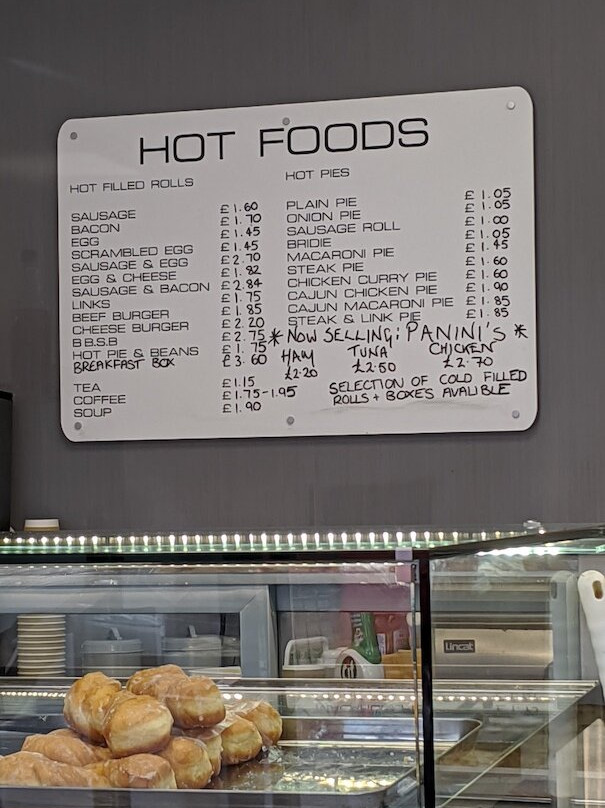 HOT FOODS
HOT FILLED ROLLS
SAUSAGE £1.60
BACON £1.70
EGG £1.45
SCRAMBLED EGG £1.45
SAUSAGE & EGG £2.70
EGG & CHEESE £1.82
SAUSAGE & BACON £2.84
LINKS £1.75
BEEF BURGER £1.85
CHEESE BURGER £2.20
B B.S.B £2.75
HOT PIE & BEANS £1.75
BREAKFAST BOX £3.60
TEA £1.15
COFFEE £1.75-1.95
SOUP £1.90
HOT PIES
PLAIN PIE £1.05
ONION PIE £1.05
SAUSAGE ROLL £1.00
BRIDIE £1.05
MACARONI PIE £1.45
STEAK PIE £1.60
CHICKEN CURRY PIE £1.60
CAJUN CHICKEN PIE £1.90
CAJUN MACARONI PIE £1.85
STEAK & LINK PIE £1.85
* NOW SELLING: PANINI'S *
HAM TUNA CHICKEN
£2.20 £2.50 £2.70
SELECTION OF COLD FILLED
ROLLS + BOXES AVALIBLE
Lincat